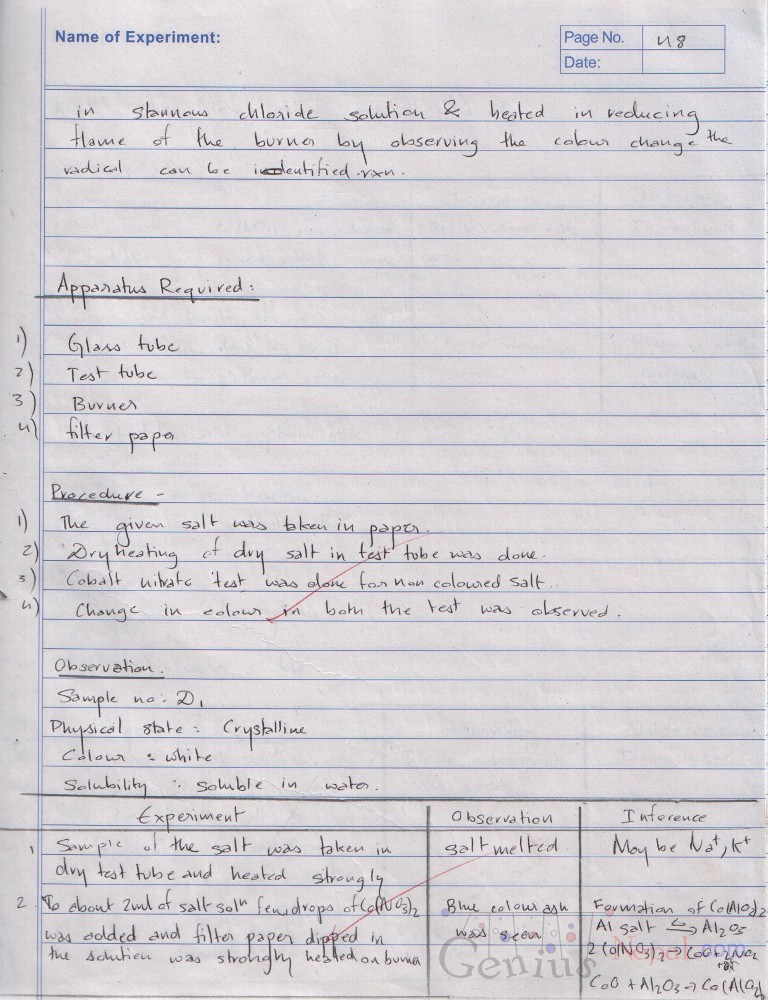 Name of Experiment:
Page No. 48
Date:
in stannous chloride solution & heated in reducing
flame of the burner by observing the colour change the
radical can be identified rxn.
Apparatus Required:
1) Glass tube
2) Test tube
3) Burner
4) filter paper
Procedure -
1) The given salt was taken in paper.
2) Dry heating of dry salt in test tube was done.
3) Cobalt nitrate test was done for non coloured salt.
4) Change in colour in both the test was observed.
Observation.
Sample no: D1
Physical state: Crystalline
Colour : white
Solubility : soluble in water.
Experiment Observation Inference
1 Sample of the salt was taken in salt melted May be Na+, K+
dry test tube and heated strongly
2. To about 2ml of salt soln few drops of Co(NO3)2 Blue colour ash Formation of Co(AlO2)2
was added and filter paper dipped in was seen Al salt → Al2O3
the solution was strongly heated on burner 2Co(NO3)2 → CoO + 2NO2
CoO + Al2O3 → Co(AlO2)2
Genius Nepal.com